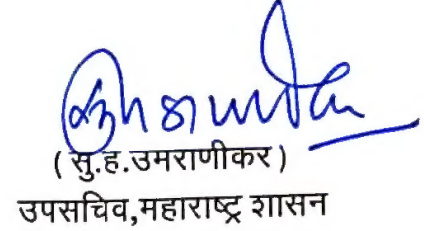 ( सु.ह.उमराणीकर )
उपसचिव,महाराष्ट्र शासन